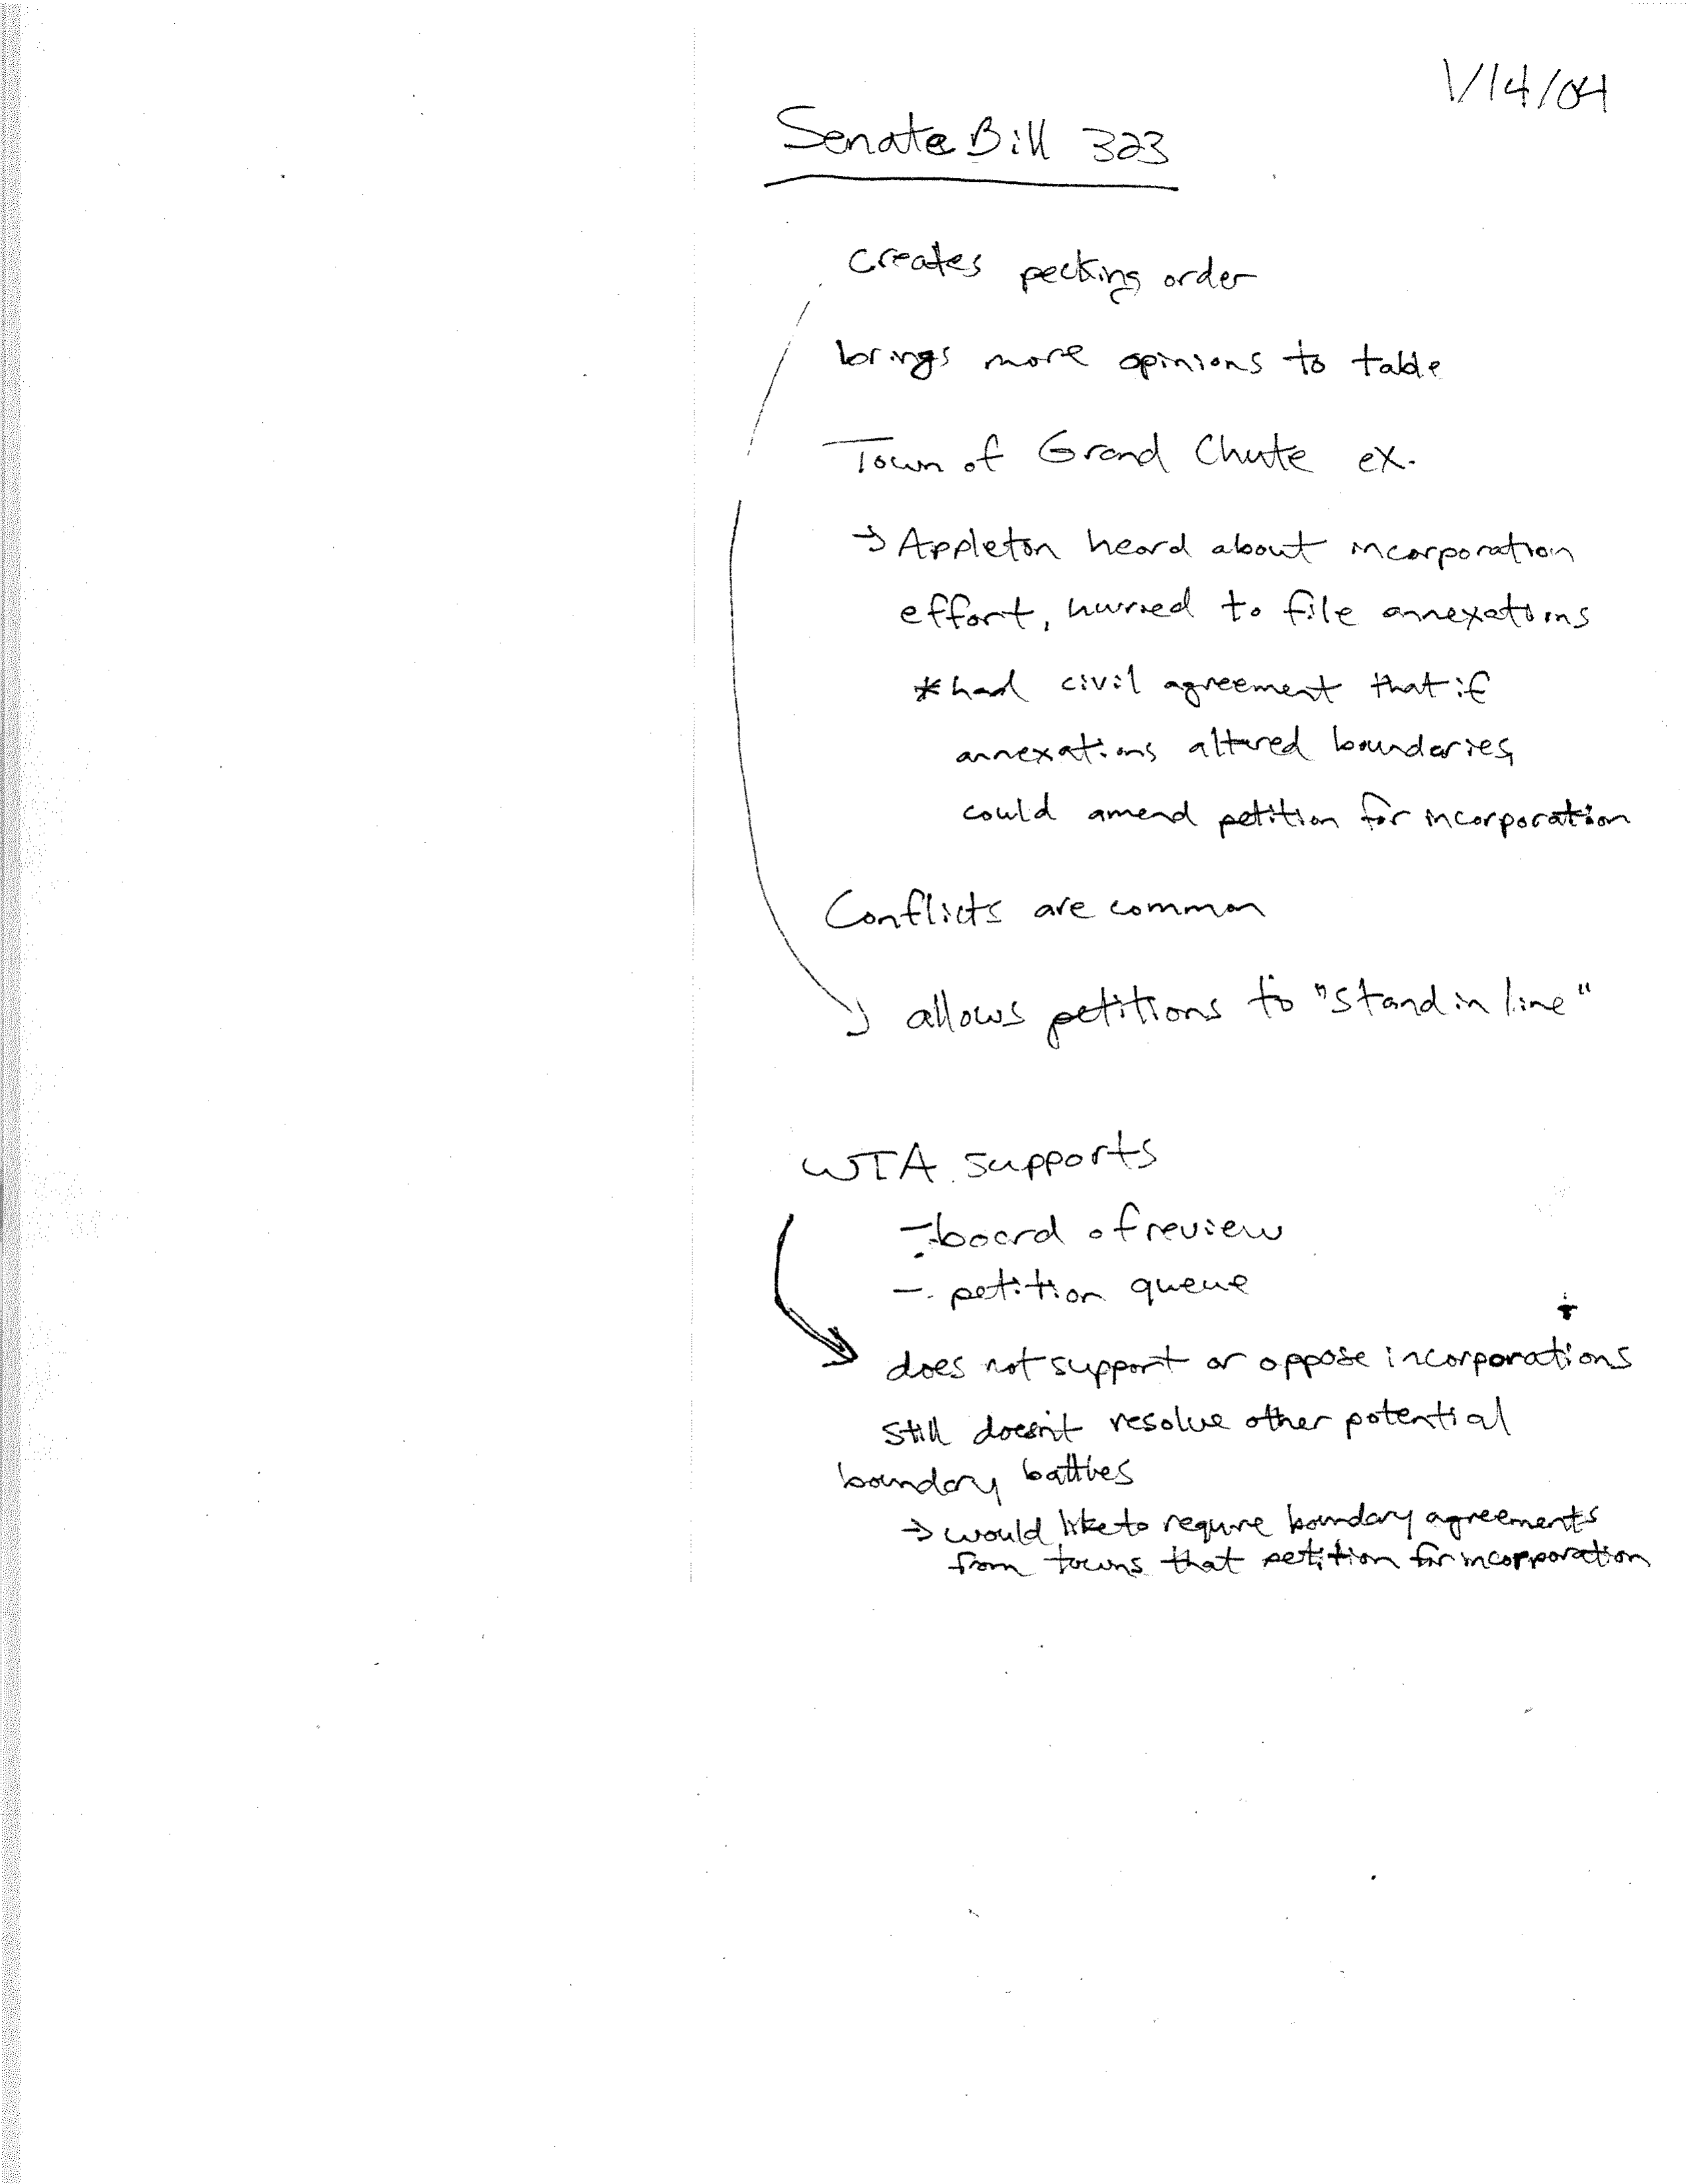 1/14/04
Senate Bill 323
creates pecking order
brings more opinions to table
Town of Grand Chute ex.
→ Appleton heard about incorporation
effort, hurried to file annexations
* had civil agreement that if
annexations altered boundaries,
could amend petition for incorporation
Conflicts are common
→ allows petitions to "stand in line"
WTA supports
- board of review
- petition queue
→ does not support or oppose incorporations
still doesn't resolve other potential
boundary battles
→ would like to require boundary agreements
from towns that petition for incorporation